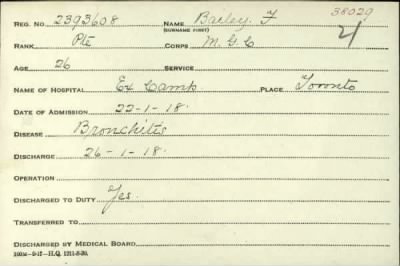 38029
REG. NO. 2393608 NAME Bailey. F
(SURNAME FIRST) 4
RANK Pte CORPS M. G. C
AGE 26 SERVICE
NAME OF HOSPITAL Ex Camp PLACE Toronto
DATE OF ADMISSION 22-1-18.
DISEASE Bronchitis
DISCHARGE 26-1-18.
OPERATION
DISCHARGED TO DUTY Yes.
TRANSFERRED TO
DISCHARGED BY MEDICAL BOARD
100M-9-17-H.Q. 1211-8-30.